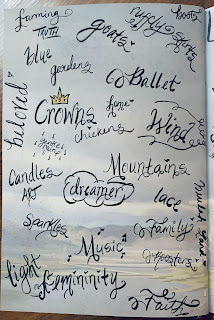 farming
TRUTH
goats
ruffly skirts
boots
blue
gardens
Ballet
beloved
Crowns
home
chickens
Wind
Candles
Art
Mountains
dreamer
lace
Sparkles
Music
Family
Roosters
light
femininity
Faith